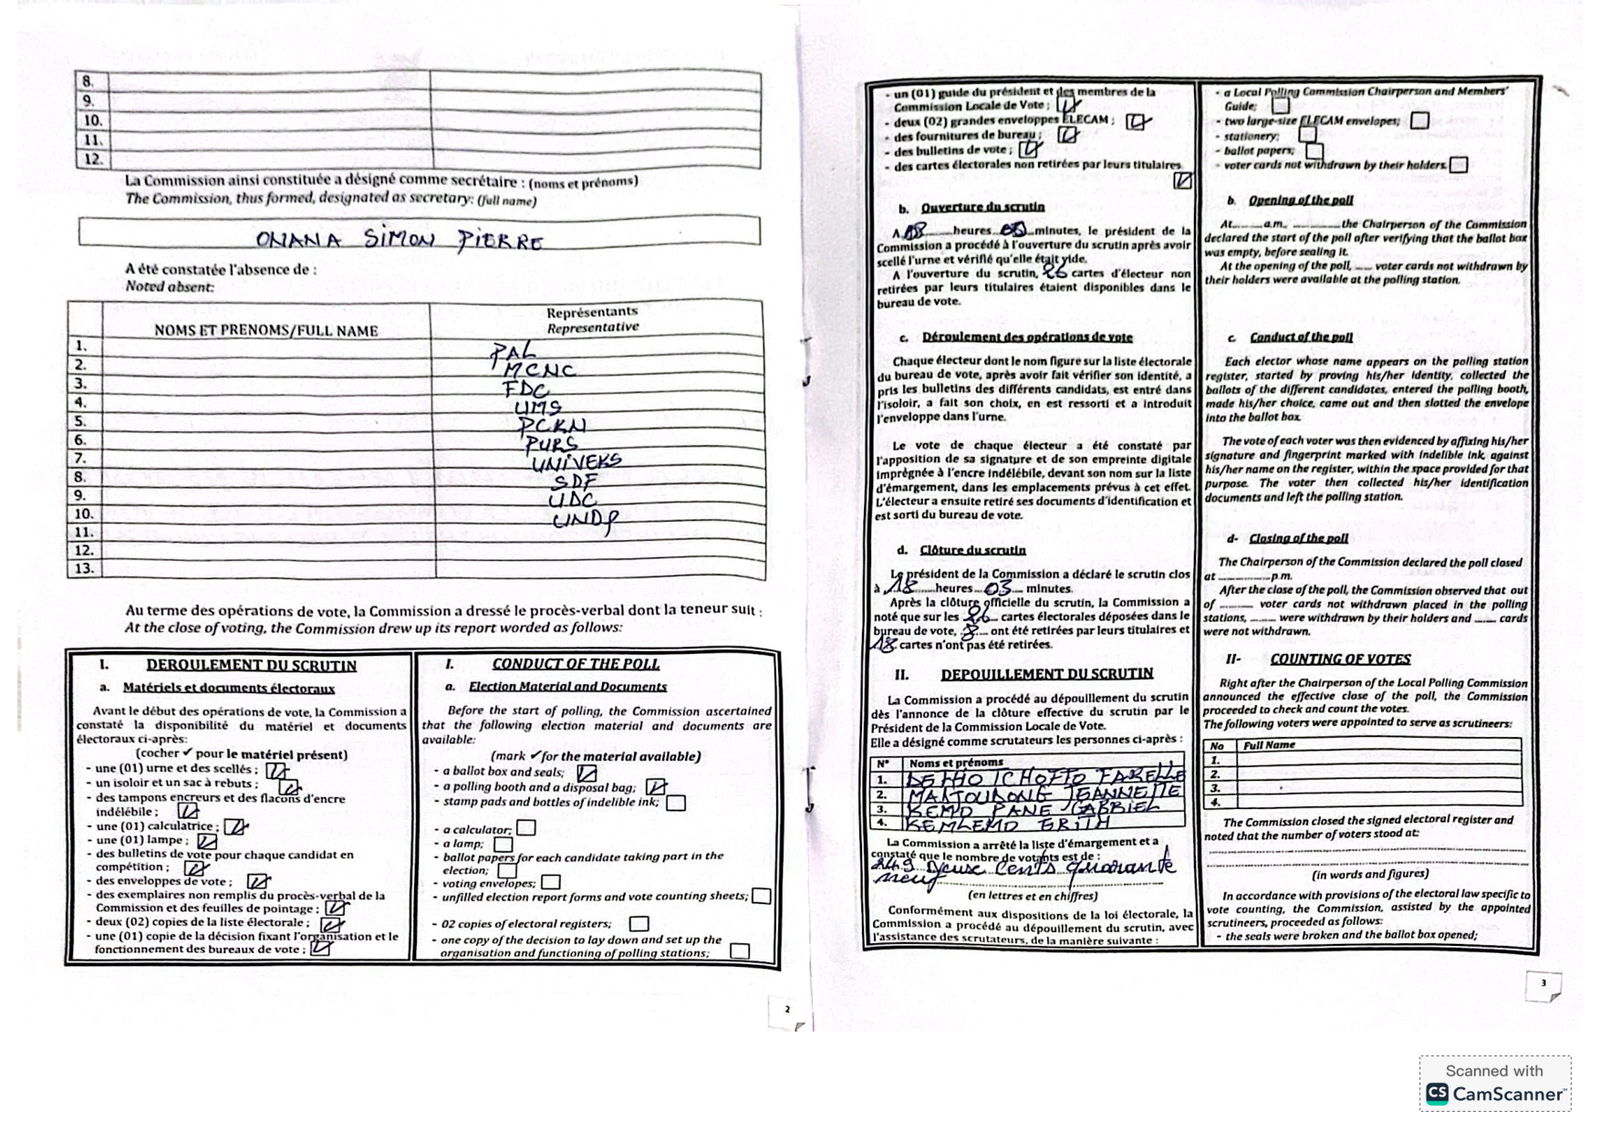 8.
9.
10.
11.
12.
La Commission ainsi constituée a désigné comme secrétaire : (noms et prénoms)
The Commission, thus formed, designated as secretary: (full name)
ONANA SIMON PIERRE
A été constatée l'absence de :
Noted absent:
NOMS ET PRENOMS/FULL NAME
Représentants
Representative
1. PAL
2. MCNC
3. FDC
4. UMS
5. PCRN
6. PURS
7. UNIVERS
8. SDF
9. UDC
10. UNDP
11.
12.
13.
Au terme des opérations de vote, la Commission a dressé le procès-verbal dont la teneur suit :
At the close of voting, the Commission drew up its report worded as follows:
I. DEROULEMENT DU SCRUTIN
a. Matériels et documents électoraux
Avant le début des opérations de vote, la Commission a
constaté la disponibilité du matériel et documents
électoraux ci-après:
(cocher ✓ pour le matériel présent)
- une (01) urne et des scellés ;
- un isoloir et un sac à rebuts ;
- des tampons encreurs et des flacons d'encre
indélébile ;
- une (01) calculatrice ;
- une (01) lampe ;
- des bulletins de vote pour chaque candidat en
compétition ;
- des enveloppes de vote ;
- des exemplaires non remplis du procès-verbal de la
Commission et des feuilles de pointage ;
- deux (02) copies de la liste électorale ;
- une (01) copie de la décision fixant l'organisation et le
fonctionnement des bureaux de vote ;
I. CONDUCT OF THE POLL
a. Election Material and Documents
Before the start of polling, the Commission ascertained
that the following election material and documents are
available:
(mark ✓ for the material available)
- a ballot box and seals;
- a polling booth and a disposal bag;
- stamp pads and bottles of indelible ink;
- a calculator;
- a lamp;
- ballot papers for each candidate taking part in the
election;
- voting envelopes;
- unfilled election report forms and vote counting sheets;
- 02 copies of electoral registers;
- one copy of the decision to lay down and set up the
organisation and functioning of polling stations;
2
- un (01) guide du président et des membres de la
Commission Locale de Vote ;
- deux (02) grandes enveloppes ELECAM ;
- des fournitures de bureau ;
- des bulletins de vote ;
- des cartes électorales non retirées par leurs titulaires
b. Ouverture du scrutin
A 08 heures 00 minutes, le président de la
Commission a procédé à l'ouverture du scrutin après avoir
scellé l'urne et vérifié qu'elle était vide.
A l'ouverture du scrutin, 26 cartes d'électeur non
retirées par leurs titulaires étaient disponibles dans le
bureau de vote.
c. Déroulement des opérations de vote
Chaque électeur dont le nom figure sur la liste électorale
du bureau de vote, après avoir fait vérifier son identité, a
pris les bulletins des différents candidats, est entré dans
l'isoloir, a fait son choix, en est ressorti et a introduit
l'enveloppe dans l'urne.
Le vote de chaque électeur a été constaté par
l'apposition de sa signature et de son empreinte digitale
imprégnée à l'encre indélébile, devant son nom sur la liste
d'émargement, dans les emplacements prévus à cet effet.
L'électeur a ensuite retiré ses documents d'identification et
est sorti du bureau de vote.
d. Clôture du scrutin
Le président de la Commission a déclaré le scrutin clos
à 18 heures 03 minutes.
Après la clôture officielle du scrutin, la Commission a
noté que sur les 26 cartes électorales déposées dans le
bureau de vote, 8 ont été retirées par leurs titulaires et
18 cartes n'ont pas été retirées.
II. DEPOUILLEMENT DU SCRUTIN
La Commission a procédé au dépouillement du scrutin
dès l'annonce de la clôture effective du scrutin par le
Président de la Commission Locale de Vote.
Elle a désigné comme scrutateurs les personnes ci-après :
N° Noms et prénoms
1. FARELLE
2. JEANNETTE
3. PANE GABRIEL
4.
La Commission a arrêté la liste d'émargement et a
constaté que le nombre de votants est de :
249 Deux Cents quarante
neuf
(en lettres et en chiffres)
Conformément aux dispositions de la loi électorale, la
Commission a procédé au dépouillement du scrutin, avec
l'assistance des scrutateurs, de la manière suivante :
- a Local Polling Commission Chairperson and Members'
Guide;
- two large-size ELECAM envelopes;
- stationery;
- ballot papers;
- voter cards not withdrawn by their holders
b. Opening of the poll
At........a.m. ............the Chairperson of the Commission
declared the start of the poll after verifying that the ballot box
was empty, before sealing it.
At the opening of the poll, ...... voter cards not withdrawn by
their holders were available at the polling station.
c. Conduct of the poll
Each elector whose name appears on the polling station
register, started by proving his/her identity, collected the
ballots of the different candidates, entered the polling booth,
made his/her choice, came out and then slotted the envelope
into the ballot box.
The vote of each voter was then evidenced by affixing his/her
signature and fingerprint marked with indelible ink, against
his/her name on the register, within the space provided for that
purpose. The voter then collected his/her identification
documents and left the polling station.
d- Closing of the poll
The Chairperson of the Commission declared the poll closed
at ..............p.m.
After the close of the poll, the Commission observed that out
of ......... voter cards not withdrawn placed in the polling
stations, ....... were withdrawn by their holders and ...... cards
were not withdrawn.
II- COUNTING OF VOTES
Right after the Chairperson of the Local Polling Commission
announced the effective close of the poll, the Commission
proceeded to check and count the votes.
The following voters were appointed to serve as scrutineers:
No Full Name
1.
2.
3.
4.
The Commission closed the signed electoral register and
noted that the number of voters stood at:
(in words and figures)
In accordance with provisions of the electoral law specific to
vote counting, the Commission, assisted by the appointed
scrutineers, proceeded as follows:
- the seals were broken and the ballot box opened;
3
Scanned with
CS CamScanner